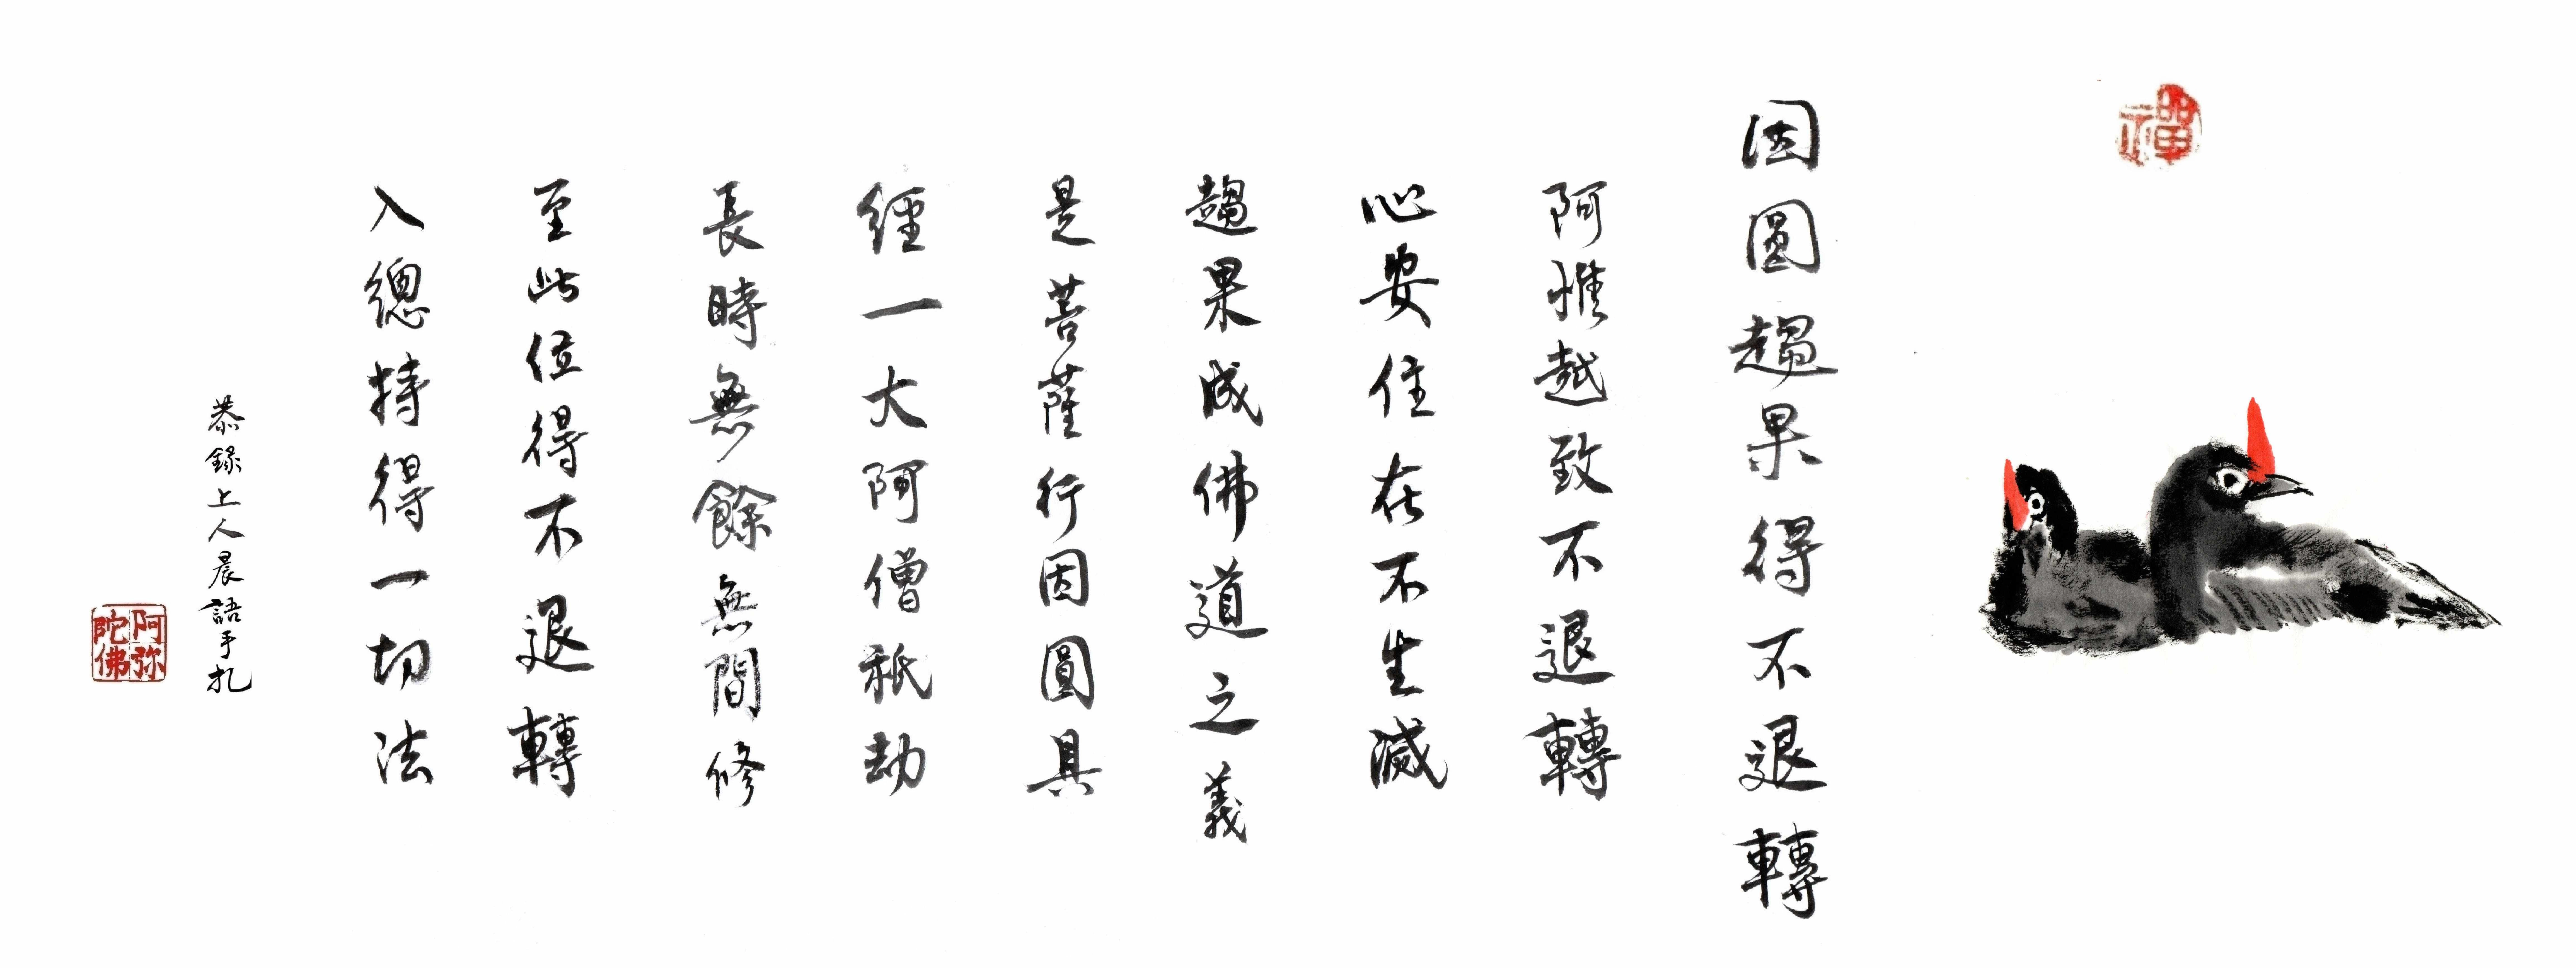 禪
因圓趨果得不退轉
阿惟越致不退轉
心安住在不生滅
趨果成佛道之義
是菩薩行因圓具
經一大阿僧祇劫
長時無餘無間修
至此位得不退轉
入總持得一切法
恭錄上人晨語手札
阿弥陀佛